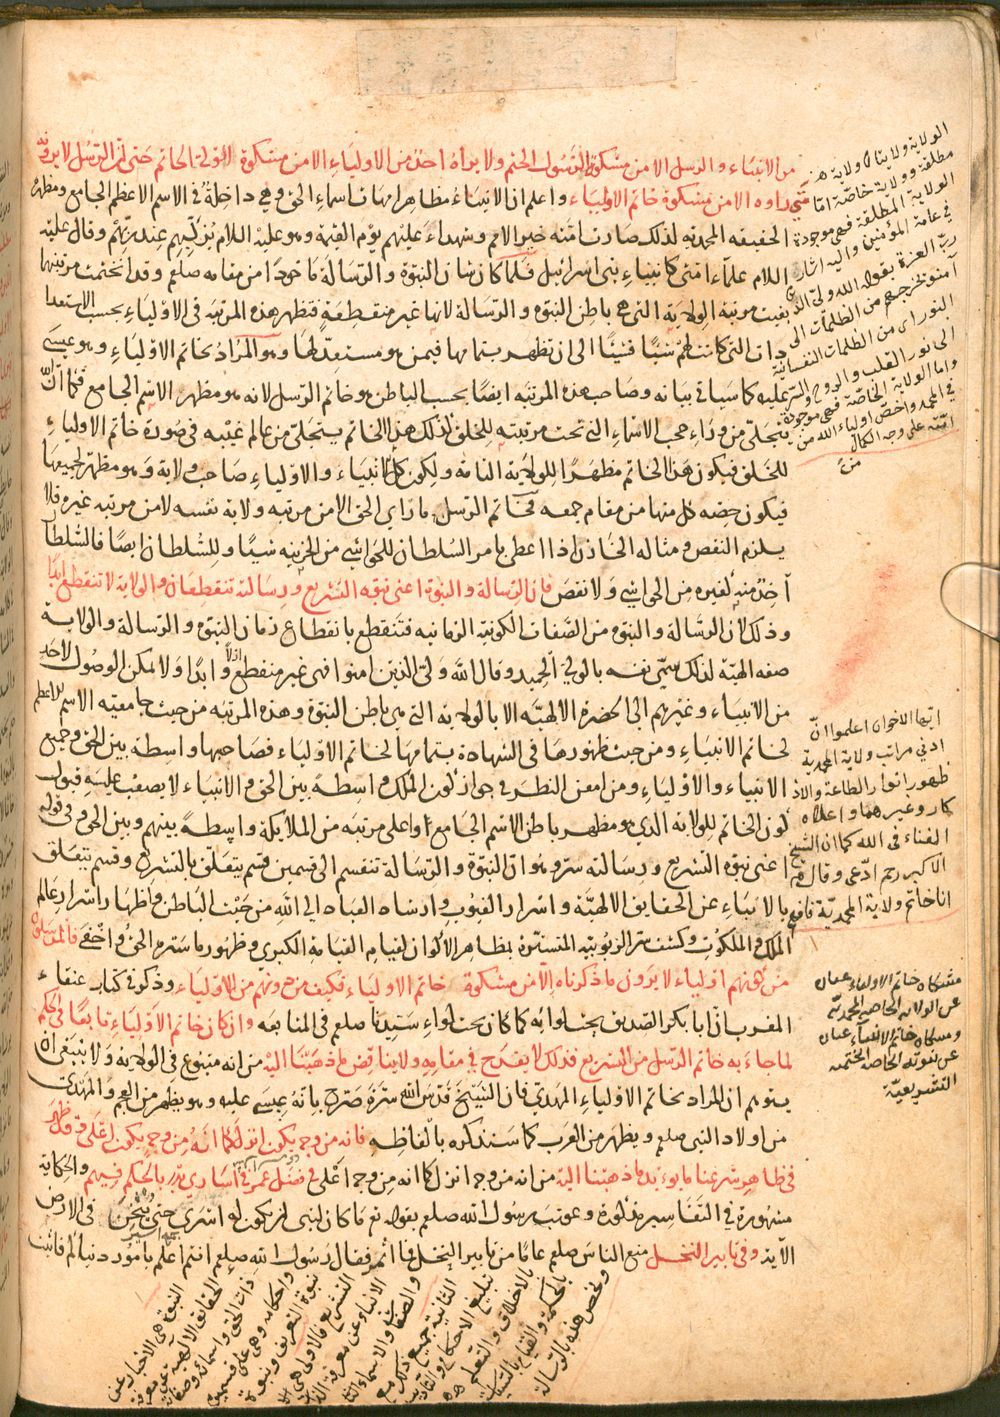 من الانبياء والرسل الا من مشكوة الرسول الختم ولا يراه احد من الاولياء الا من مشكوة الولي الخاتم حتى ان الرسل لا يرونه
متى راوه الا من مشكوة خاتم الاولياء واعلم ان الانبياء مظاهر امهات اسماء الحق وهي داخلة في الاسم الاعظم الجامع ومظهره
الحقيقه المحمديه لذلك صارت امته خير الامم وشهداء عليهم يوم القيمة وهو عليه السلام يزكيهم عند ربهم وقال عليه
السلام علماء امتي كانبياء بني اسرائيل فلما كان شان النبوة والرسالة ماخوذا من مقامه صلعم وقد انختمت مرتبتهما
بقيت مرتبه الولاية التي هي باطن النبوه والرسالة لانها غير منقطعة فتظهر هذه المرتبه في الاولياء بحسب الاستعدا
دات التي كانت لهم شيئا فشيئا الى ان تظهر بتمامها فيمن هو مستعد لها وهو المراد بخاتم الاولياء وهو عيسى
عليه كما سياتي بيانه وصاحب هذه المرتبه ايضا بحسب الباطن هو خاتم الرسل لانه هو مظهر الاسم الجامع فكما ان الله
يتجلى من وراء حجب الاسماء التي تحت مرتبته للخلق لذلك هذا الخاتم يتجلى من عالم غيبه في صورة خاتم الاولياء
للخلق فيكون هذا الخاتم مظهرا للولاية التامه ولكون كل الانبياء والاولياء صاحب ولاية وهو مظهر لجميعها
فيكون حصه كل منها من مقام جمعه فخاتم الرسل ما راى الحق الا من مرتبه ولاية نفسه لا من مرتبه غيره فلا
يلزم النقص ومثاله الخازن اذا اعطى بامر السلطان للحواشي من الخزينه شيئا وللسلطان ايضا فالسلطان
آخذ منه كغيره من الحواشي ولا نقص فان الرسالة والنبوة اعني نبوة التشريع ورسالته تنقطعان والولاية لا تنقطع ابدا
وذلك لان الرسالة والنبوه من الصفات الكونية الزمانيه فتنقطع بانقطاع زمان النبوه والرسالة والولاية
صفه الهية لذلك سمى نفسه بالولي الحميد وقال الله ولي الذين امنوا فهي غير منقطعة ازلا وابدا ولا يمكن الوصول لاحد
من الانبياء وغيرهم الى الحضرة الالهية الا بالولاية التي هي باطن النبوة وهذه المرتبه من حيث جامعيه الاسم الاعظم
لخاتم الانبياء ومن حيث ظهورها في الشهادة بتمامها لخاتم الاولياء فصاحبها واسطة بين الحق وجميع
الانبياء والاولياء ومن امعن النظر في جواز كون الملك واسطة بين الحق والانبياء لا يصعب عليه قبول
كون الخاتم للولاية الذي هو مظهر باطن الاسم الجامع واعلى مرتبه من الملايكة واسطة بينهم وبين الحق وفي قوله
اعني نبوة التشريع ورسالته سر وهو ان النبوة والرسالة تنقسم الى قسمين قسم يتعلق بالتشريع وقسم يتعلق
بالانباء عن الحقايق الالهية واسرار الغيوب وارشاد العباد الى الله من حيث الباطن واظهار اسرار عالم
الملك والملكوت وكشف سر الربوبية المتسترة بمظاهر الاكوان لقيام القيامة الكبرى وظهور ما ستره الحق واخفى فالمرسلون
من كونهم اولياء لا يرون ما ذكرناه الا من مشكوة خاتم الاولياء فكيف من دونهم من الاولياء وذكر في كتاب عنقاء
المغرب ان ابا بكر الصديق تحت لوائه كما كان تحت لواء سيدنا صلعم في المتابعه وان كان خاتم الاولياء تابعا في الحكم
لما جاء به خاتم الرسل من التشريع فذلك لا يقدح في مقامه ولا يناقض ما ذهبنا اليه من انه متبوع في الولاية ولا ينبغي ان
يتوهم ان المراد بخاتم الاولياء المهدي فان الشيخ قدس الله سره صرح بانه عيسى عليه وهو يظهر من العجم والمهدي
من اولاد النبي صلعم ويظهر من العرب كما سنذكره بالفاظه فانه من وجه يكون انزل كما انه من وجه يكون اعلى وقد ظهر
في ظاهر شرعنا ما يؤيد ما ذهبنا اليه من انه من وجه انزل كما انه من وجه اعلى في فضل عمر في اسارى بدر بالحكم فيهم والحكاية
مشهورة في التفاسير مذكورة وعوتب رسول الله صلعم بقوله تع ما كان لنبي ان يكون له اسرى حتى يثخن في الارض
الآية وفي تابير النخل منع الناس صلعم عاما من تابير النخل فما اثمر فقال رسول الله صلعم انتم اعلم بامور دنياكم فاثبت
الولاية ولايتان ولاية
مطلقة وولاية خاصة اما
الولاية المطلقة فهي موجودة
في عامة المؤمنين واليه اشار
رب العزة بقوله الله ولي الذين
آمنوا يخرجهم من الظلمات الى
النور اى من الظلمات النفسانية
الى نور القلب والروح والسر
واما الولاية الخاصة فهي موجودة
في المحمد واخص اولياء الله من
امته على وجه الكمال
ايها الاخوان اعلموا ان
ادنى مراتب ولاية المحمدية
ظهور انوار الطاعة والاذ
كار وغيرهما واعلاه
الفناء في الله كما ان الشيخ
الاكبر رحمه ادعى وقال
انا خاتم ولاية المحمدية فافهم
مشكاة خاتم الاولياء عبارة
عن الولاية الخاصة المحمدية
ومشكاة خاتم الانبياء عبارة
عن نبوته الخاصة الختمية
التشريعية
النبوة هي الاخبار عن
الحقائق الالهية عن معرفة
ذات الحق واسمائه وصفاته
واحكامه وهي على قسمين
نبوة التعريف ونبوة
التشريع فالاولى هي
الانباء عن معرفة الذات
والصفات والاسماء
الثانية جميع ذلك مع
تبليغ الاحكام والتاديب
بالاخلاق والتعليم
بالحكمة والقيام بالسياسة
وتخص هذه بالرسالة